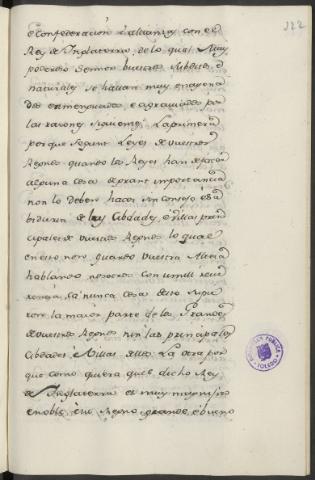 322
e Confederación e alianza con el
Rey de Inglaterra, de lo qual Muy
poderoso Señor vuestros subditos e
naturales se hallan muy enajena
dos e amenguados e agraviados por
las razones siguientes. La primera
porque segunt Leyes de vuestros
Regnos quando los Reyes han de facer
alguna cosa de grant importancia
non lo deben hacer sin consejo e sa
biduria de las Cibdades, e Villas prin
cipales de vuestros Regnos lo qual
en esto non guardó vuestra Alteza
hablando nosotros con umill reve
rencia, ca nunca cerca desto supie
ron la maior parte de los Grandes
de vuestros Regnos nin las principales
Cibdades e Villas dellos. La otra por
que como quiera quel dicho Rey
de Inglaterra es muy magnifico
e noble, e su Regno grande e bueno
BIBLIOTECA PUBLICA
TOLEDO